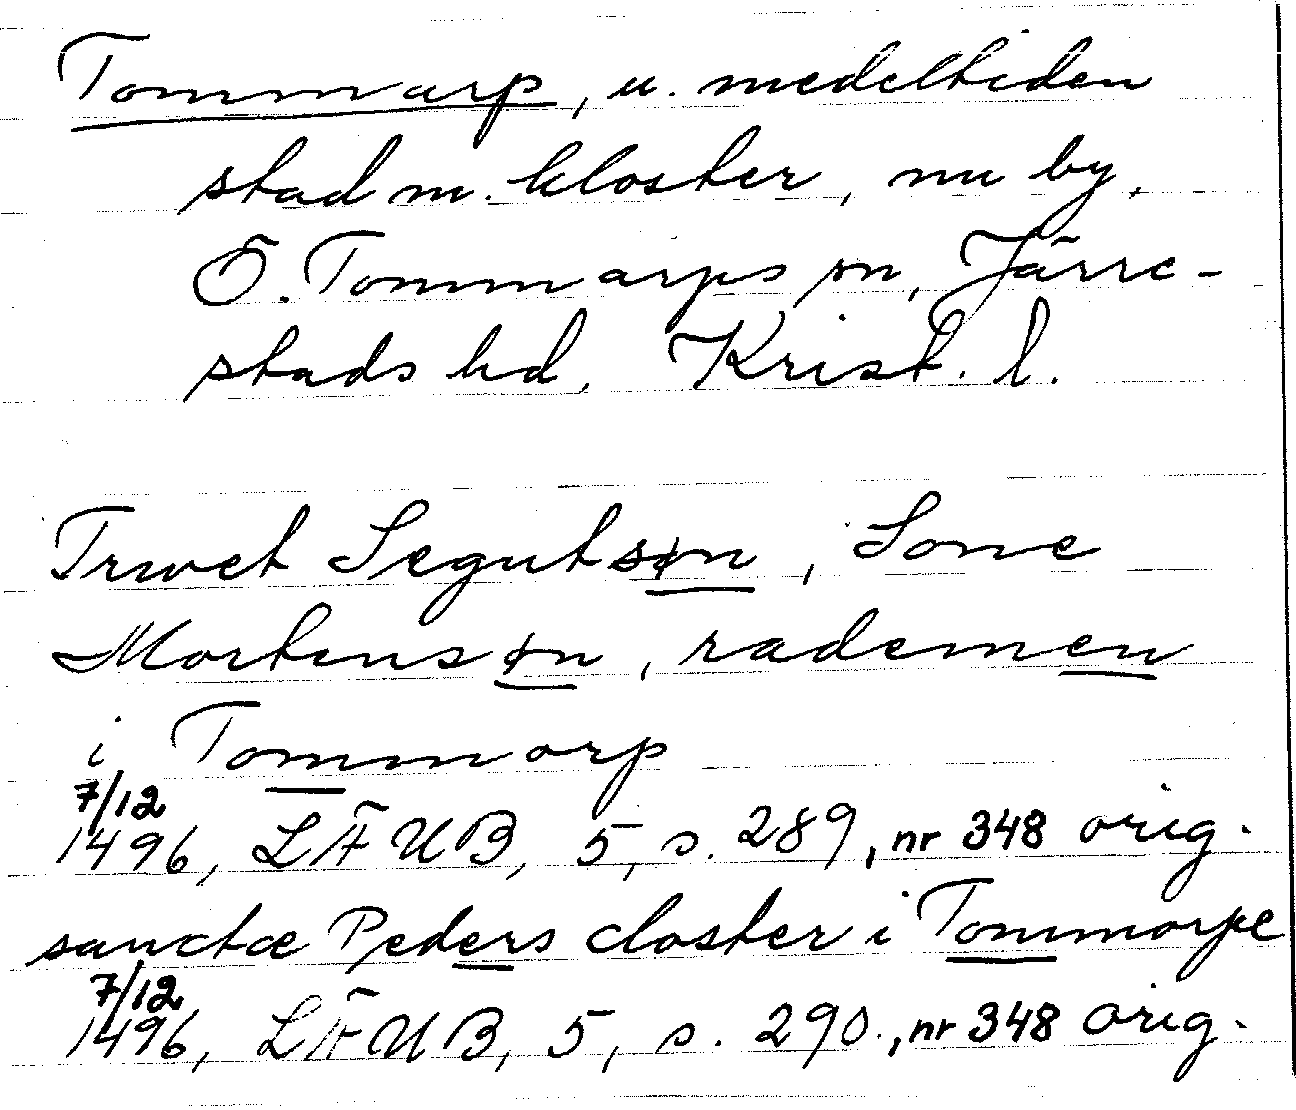 Tommarp, u. medeltiden
stad m. kloster, nu by,
Ö. Tommarps sn, Järre-
stads hd, Krist. l.
Truet Segutsøn, Sone
Mortensøn, rademen
i Tommorp
7/12
1496, LÄUB, 5, s. 289, nr 348 orig.
sanctæ Peders closter i Tommorpe
7/12
1496, LÄUB, 5, s. 290., nr 348 orig.